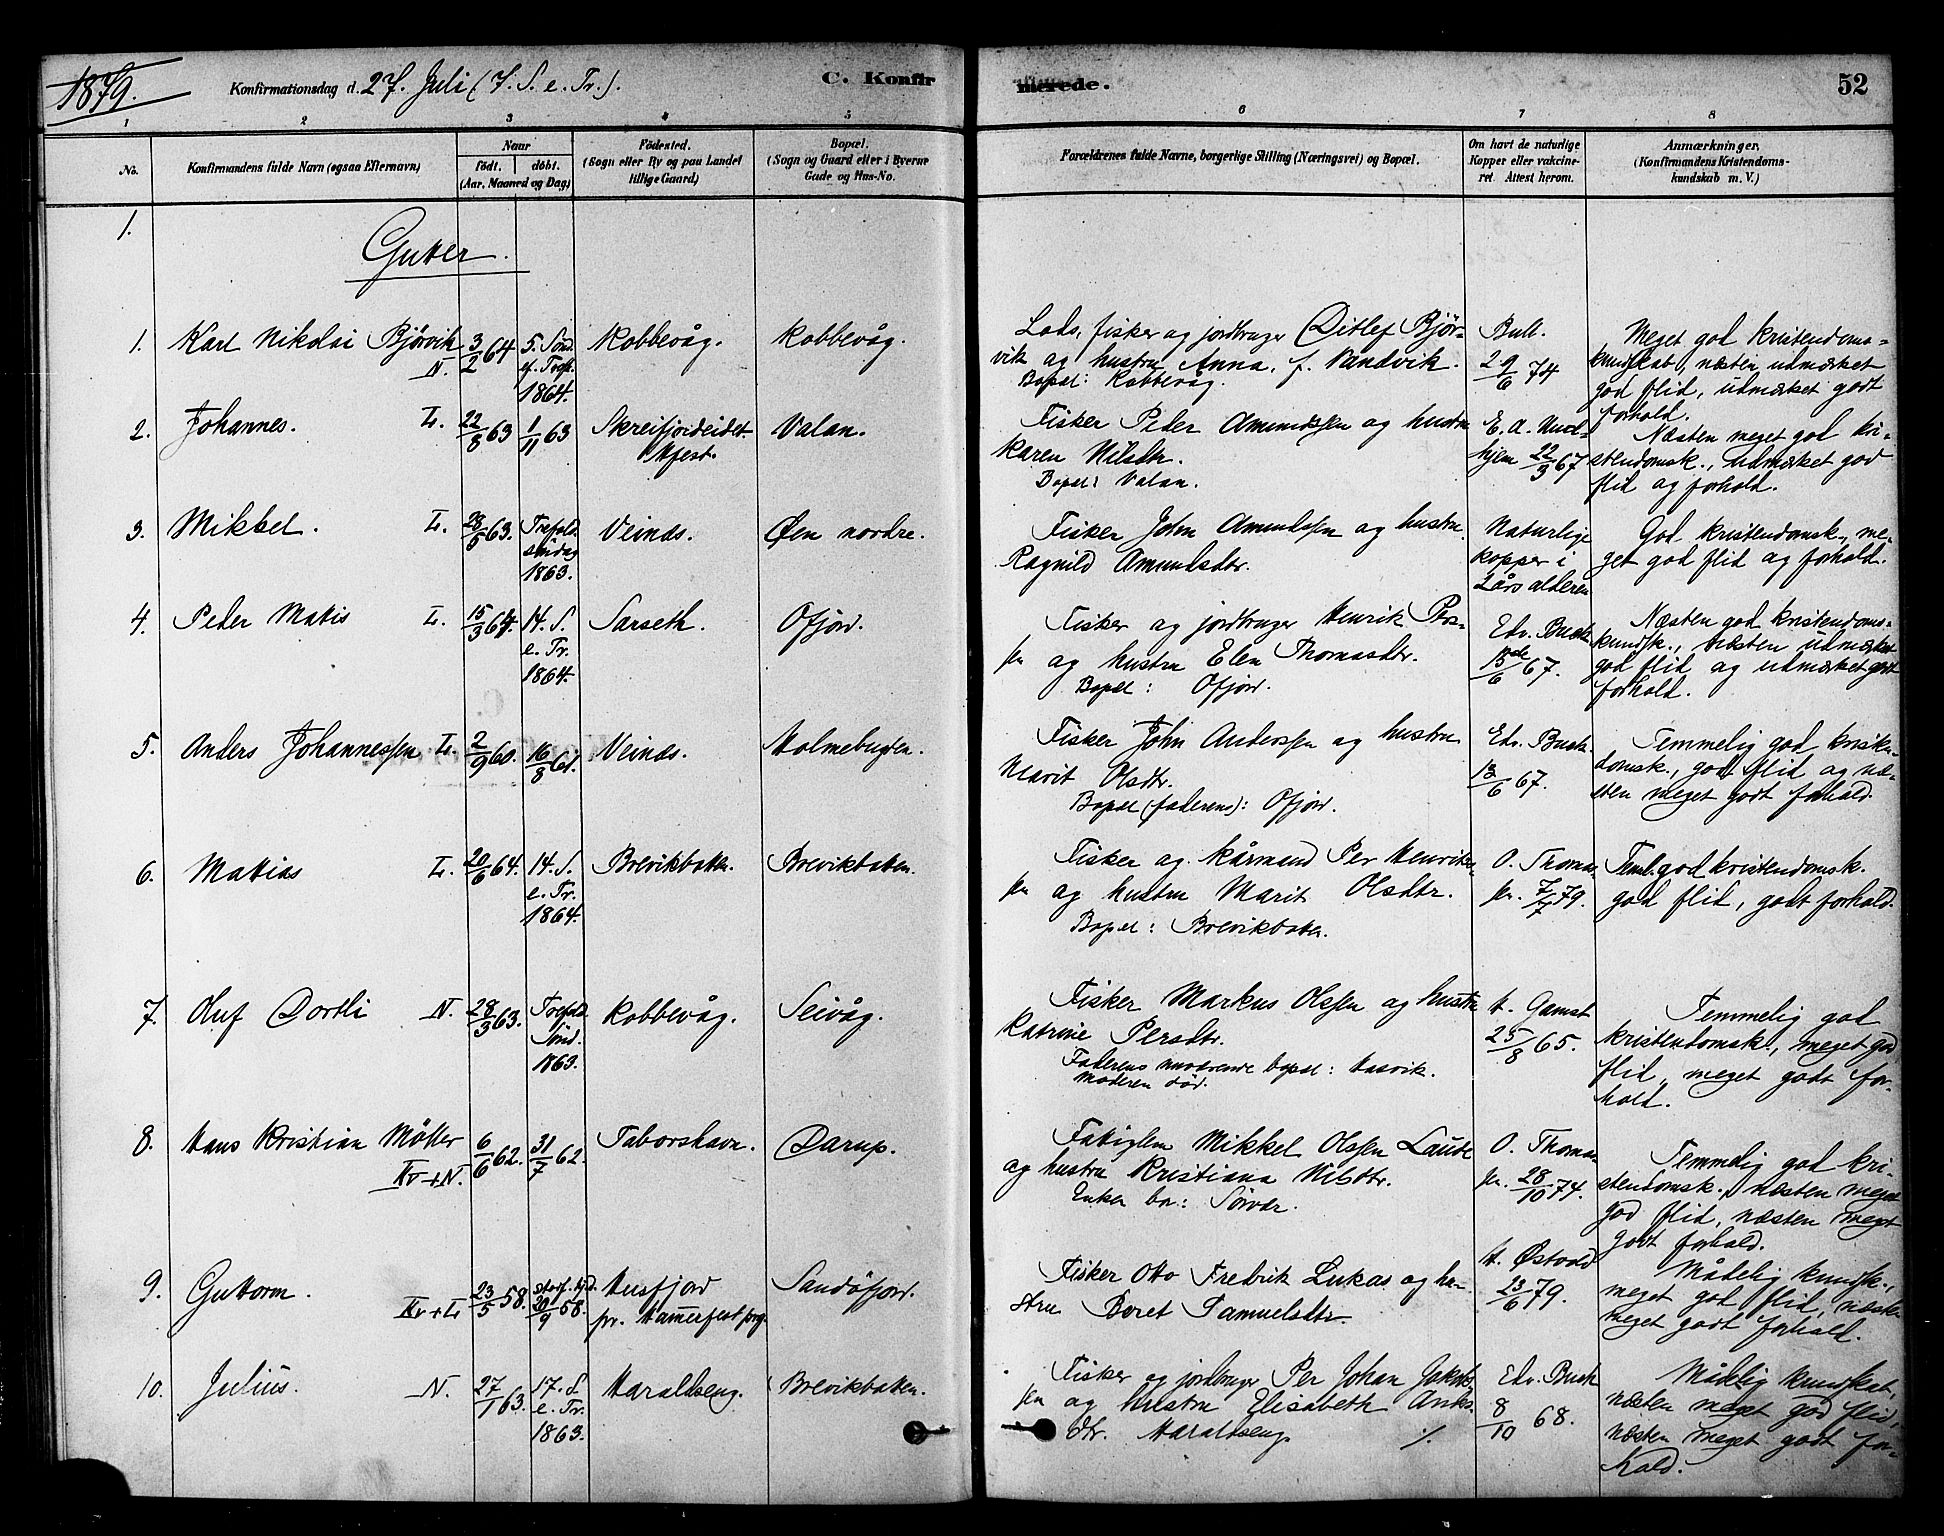 1879.
Konfirmationsdag d. 27. Juli (7. S. e. Tr.).
C. Konfirmerede.
52
1 2 3 4 5 6 7 8
No.
Konfirmandens fulde Navn (ogsaa Efternavn)
Naar
født. døbt.
(Aar, Maaned og Dag)
Fødested.
(Sogn eller By og paa Landet
tillige Gaard)
Bopæl.
(Sogn og Gaard eller i Byerne
Gade og Hus-No.
Forældrenes fulde Navne, borgerlige Stilling (Næringsvei) og Bopæl.
Om havt de naturlige
Kopper eller vakcine-
ret. Attest herom.
Anmærkninger.
(Konfirmandens Kristendoms-
kundskab m. V.)
1.
Gutter.
1. Karl Nikolai Bjørvik
N.
3/2 64
5. Sønd.
ef. Tref.
1864.
Kobbevåg.
Kobbevåg.
Lods, fisker og jordbruger Ditlef Bjør-
vik og hustru Anna, f. Sandvik.
Bopæl: Kobbevåg.
Bull.
29/6 74
Meget god kristendoms-
kundskab, næsten udmærket
god flid, udmærket godt
forhold.
2. Johannes. L.
22/8 63
1/11 63
Skreifjordeidet.
Mfest.
Valan.
Fisker Peder Amundssen og hustru
Karen Nilsdtr.
Bopæl: Valan.
E. A. Und-
hjem 22/3 67
Næsten meget god kri-
stendomsk., udmærket god
flid og forhold.
3. Mikkel. L.
28/5 63.
Trefold.
søndag
1863.
Veinds.
Øen nordre.
Fisker John Amundssen og hustru
Ragnild Amundsdtr.
Naturlige
kopper i
2 års alderen
God kristendomsk., me-
get god flid og forhold.
4. Peder Matis L.
15/3 64.
14. S.
e. Tr.
1864.
Sarseth.
Ofjord.
Fisker og jordbruger Henrik Pers-
sen og hustru Elen Thomasdtr.
Bopæl: Ofjord.
Edv. Buck
15de/6 67.
Næsten god kristendoms-
kundsk., næsten udmærket
god flid og udmærket godt
forhold.
5. Anders Johannessen L.
2/9 60.
16/8 61.
Veinds.
Holmebugten.
Fisker John Anderssen og hustru
Marit Olsdtr.
Bopæl (faderens): Ofjord.
Edv. Buck.
13/6 67.
Temmelig god kristen-
domsk., god flid og næ-
sten meget godt forhold.
6. Matias L.
20/6 64.
14. S.
e. Tr.
1864.
Brevikbotten.
Brevikbotten.
Fisker og kårmand Per Henrik-
sen og hustru Marit Olsdtr.
Bopæl: Brevikbotten.
O. Thomas-
sen. 7/7 79.
Teml. god kristendomsk.
god flid, godt forhold.
7. Oluf Dortli N.
28/3 63.
Trefold.
Sønd.
1863.
Kobbevåg.
Seivåg.
Fisker Markus Olssen og hustru
Katrine Persdtr.
Faderens nuværende bopæl: Hasvik.
Moderen død.
H. Gamst
25/8 65.
Temmelig god
kristendomsk., meget god
flid, meget godt for-
hold.
8. Hans Kristian Møller
Kv+N.
6/6 62.
31/7 62.
Taborshavn.
Darup.
Fattiglem Mikkel Olssen Laude
og hustru Kristiana Nilsdtr.
Enken bor: Sørvær.
O. Thomas-
sen. 28/10 74.
Temmelig god kri-
stendomsk., næsten meget
god flid, næsten meget
godt forhold.
9. Guttorm.
Kv+L
23/5 58.
20/9 58.
Husfjord
pr. Hamerfest prg.
Sandøfjord.
Fisker Otto Fredrik Lukas og hu-
stru Beret Samuelsdtr.
H. Østvold
23/6 79.
Mådelig kundsk.,
meget god flid, næsten
meget godt forhold.
10. Julius. N.
27/1 63.
17. S.
e. Tr.
1863.
Haraldseng.
Brevikbotten.
Fisker og jordbruger Per Johan Jakob-
sen og hustru Elisabeth
dtr. Haraldseng ./.
Edv. Buck
8/10 68.
Mådelig kundskab,
næsten meget god flid,
næsten meget godt for-
hold.